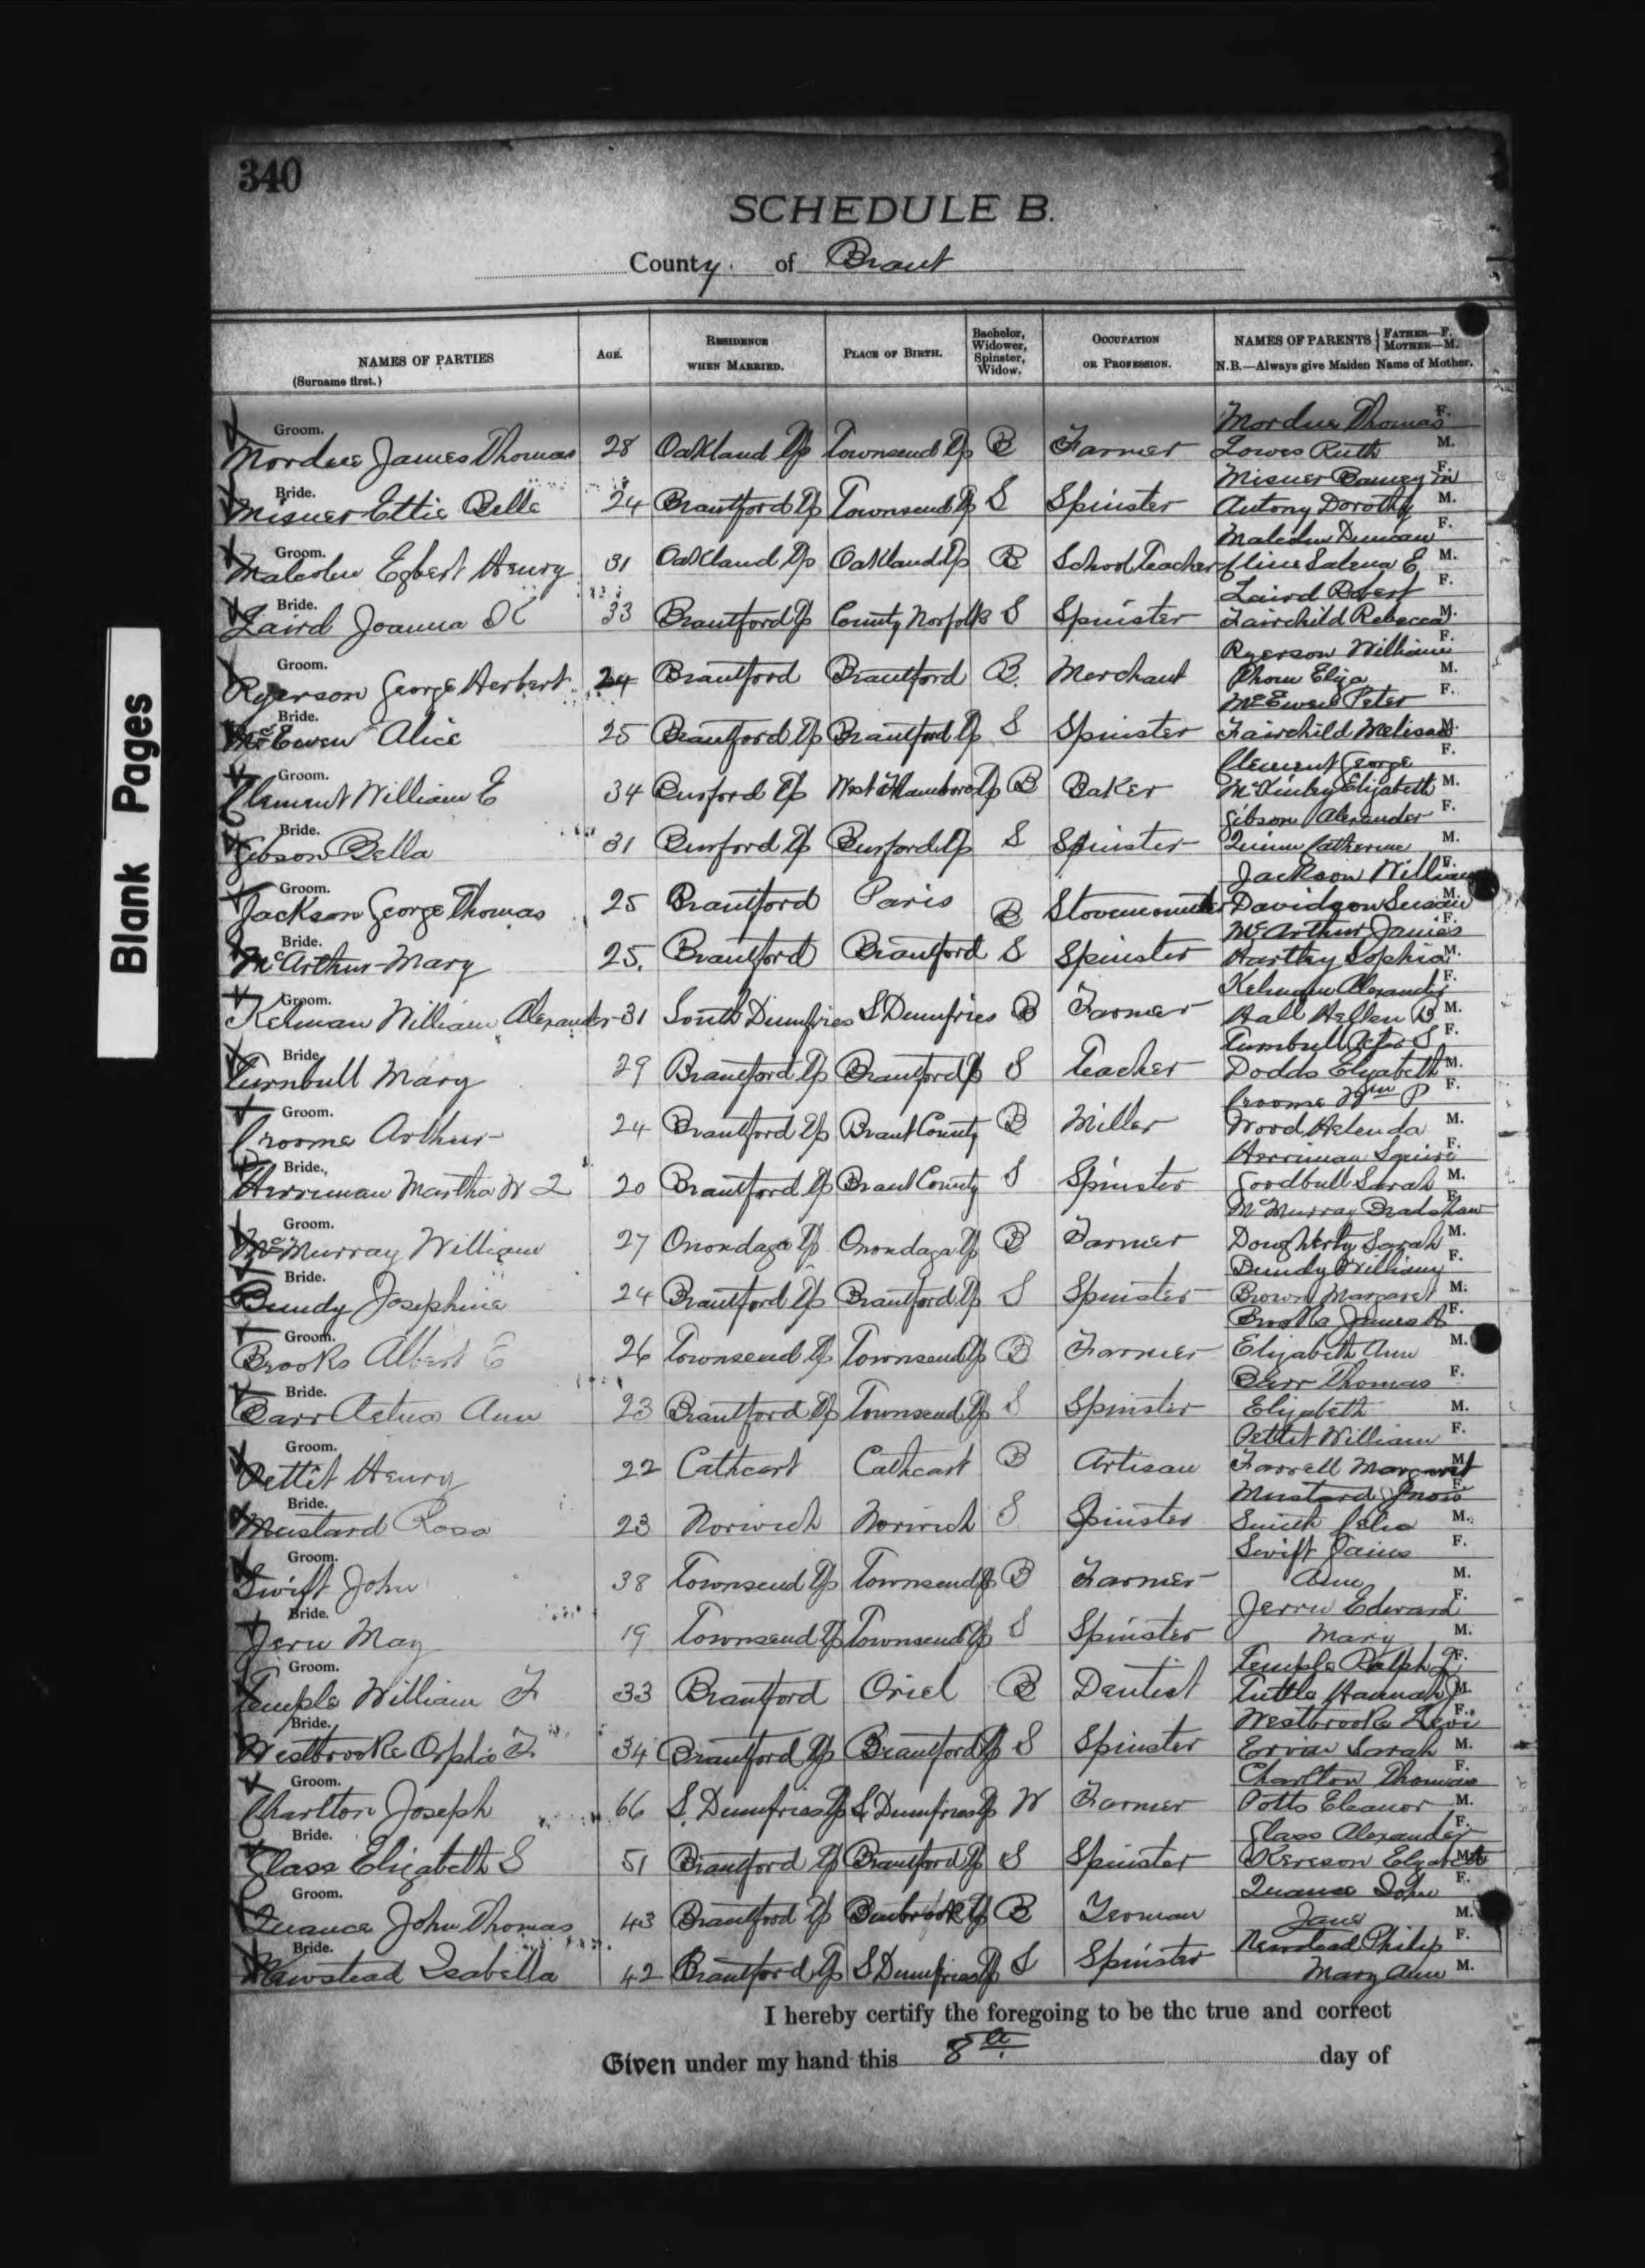 340
SCHEDULE B.
County of Brant
NAMES OF PARTIES
(Surname first.)
AGE.
RESIDENCE
WHEN MARRIED.
PLACE OF BIRTH.
Bachelor,
Widower,
Spinster,
Widow.
OCCUPATION
OR PROFESSION.
NAMES OF PARENTS { FATHER—F. MOTHER—M.
N.B.—Always give Maiden Name of Mother.
Mordue Thomas F.
Groom.
Mordue James Thomas 28 Oakland Tp Townsend Tp B Farmer Lowes Ruth M.
Misner F.
Bride.
Misner Ettie Bella 24 Brantford Tp Townsend Tp S Spinster Antony Dorothy M.
Malcolm Duncan F.
Groom.
Malcolm Egbert Henry 31 Oakland Tp Oakland Tp B School Teacher Cline Salena E M.
Laird Robert F.
Bride.
Laird Joanna 33 Brantford Tp County Norfolk S Spinster Fairchild Rebecca M.
Ryerson William F.
Groom.
Ryerson George Herbert 24 Brantford Brantford B. Merchant Eliza M.
McEwen Peter F.
Bride.
McEwen Alice 25 Brantford Tp Brantford Tp S Spinster Fairchild Melissa M.
Clement George F.
Groom.
Clement William E 34 Burford Tp West Flamboro Tp B Baker McKinley Elizabeth M.
Gibson Alexander F.
Bride.
Gibson Bella 31 Burford Tp Burford Tp S Spinster Quinn Catherine M.
Jackson William F.
Groom.
Jackson George Thomas 25 Brantford Paris B Stovemounter Davidson Susan M.
McArthur James F.
Bride.
McArthur Mary 25. Brantford Brantford S Spinster Hartley Sophia M.
Kelman Alexander F.
Groom.
Kelman William Alexander 31 South Dumfries S Dumfries B Farmer Hall Hellen B M.
Turnbull S F.
Bride.
Turnbull Mary 29 Brantford Tp Brantford Tp S Teacher Dodds Elizabeth M.
Croome Wm P F.
Groom.
Croome Arthur 24 Brantford Tp Brant County B Miller Wood Helenda M.
Herriman Squire F.
Bride.
Herriman Martha W L 20 Brantford Tp Brant County S Spinster Goodbull Sarah M.
McMurray Bradshaw F.
Groom.
McMurray William 27 Onondaga Tp Onondaga Tp B Farmer Dougherty Sarah M.
Bundy William F.
Bride.
Bundy Josephine 24 Brantford Tp Brantford Tp S Spinster Brown Margaret M.
Brooks James A F.
Groom.
Brooks Albert E 26 Townsend Tp Townsend Tp B Farmer Elizabeth Ann M.
Barr Thomas F.
Bride.
Barr Ann 23 Brantford Tp Townsend Tp S Spinster Elizabeth M.
Pettit William F.
Groom.
Pettit Henry 22 Cathcart Cathcart B Artisan Farrell Margaret M.
Mustard F.
Bride.
Mustard Rosa 23 Norwich Norwich S Spinster Smith Celia M.
Swift James F.
Groom.
Swift John 38 Townsend Tp Townsend Tp B Farmer Ann M.
Edward F.
Bride.
May 19 Townsend Tp Townsend Tp S Spinster Mary M.
Temple Ralph F.
Groom.
Temple William F 33 Brantford Oriel B Dentist Tuttle Hannah M.
Westbrooke Levi F.
Bride.
Westbrooke Orpha F. 34 Brantford Tp Brantford Tp S Spinster Sarah M.
Charlton Thomas F.
Groom.
Charlton Joseph 66 S. Dumfries Tp S. Dumfries Tp W Farmer Potts Eleanor M.
Glass Alexander F.
Bride.
Glass Elizabeth S 51 Brantford Tp Brantford Tp S Spinster Elizabeth M.
Quance John F.
Groom.
Quance John Thomas 43 Brantford Tp Binbrook Tp B Yeoman Jane M.
Newstead Philip F.
Bride.
Newstead Isabella 42 Brantford Tp S Dumfries Tp S Spinster Mary Ann M.
I hereby certify the foregoing to be the true and correct
Given under my hand this 8th day of
Blank Pages